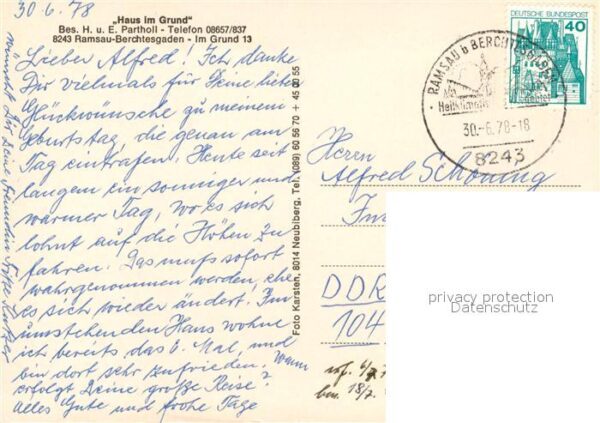 30.6.78
„Haus im Grund"
Bes. H. u. E. Partholl - Telefon 08657/837
8243 Ramsau-Berchtesgaden - Im Grund 13
Lieber Alfred! Ich danke
Dir vielmals für Deine lieben
Glückwünsche zu meinem
Geburtstag, die genau am
Tag eintrafen. Heute seit
langem ein sonniger und
warmer Tag, wo es sich
lohnt auf die Höhen zu
fahren. Das muß sofort
wahrgenommen werden, ehe
es sich wieder ändert. Im
umstehenden Haus wohne
ich bereits das 6. Mal, und
bin dort sehr zufrieden. Wann
erfolgt Deine große Reise?
Alles Gute und frohe Tage
wünscht Dir Deine Freundin
Foto Karsten, 8014 Neubiberg, Tel. (089) 60 56 70 + 45 00 55
DEUTSCHE BUNDESPOST
40
RAMSAU b BERCHTESGADEN
30.-6.78-18
8243
Herrn
Alfred Schöning
DDR
104
privacy protection
Datenschutz
18/7.